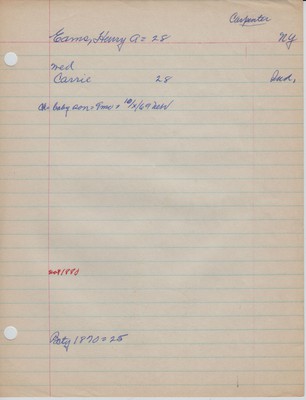 Carpenter
Eams, Henry A = 28 NY
med
Carrie 28 Ind,
Ch = baby son = 9mo = 10/2/69
not 1880
1870 = 25